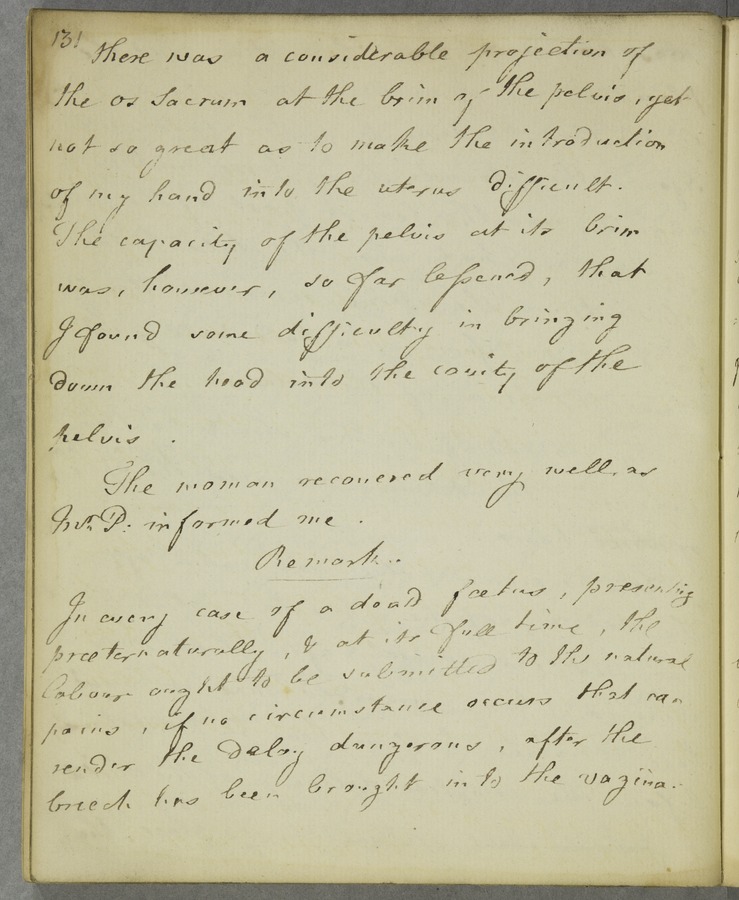 131
there was a considerable projection of
the os Sacrum at the brim of the pelvis, yet
not so great as to make the introduction
of my hand into the uterus difficult.
The capacity of the pelvis at its brim
was, however, so far lessened, that
I found some difficulty in bringing
down the head into the cavity of the
pelvis.
The woman recovered very well, as
Mr. P: informed me.
Remark.
In every case of a dead foetus, presenting
praeternaturally, & at its full time, the
labour ought to be submitted to the natural
pains, if no circumstance occurs that can
render the delay dangerous, after the
breech has been brought into the vagina.